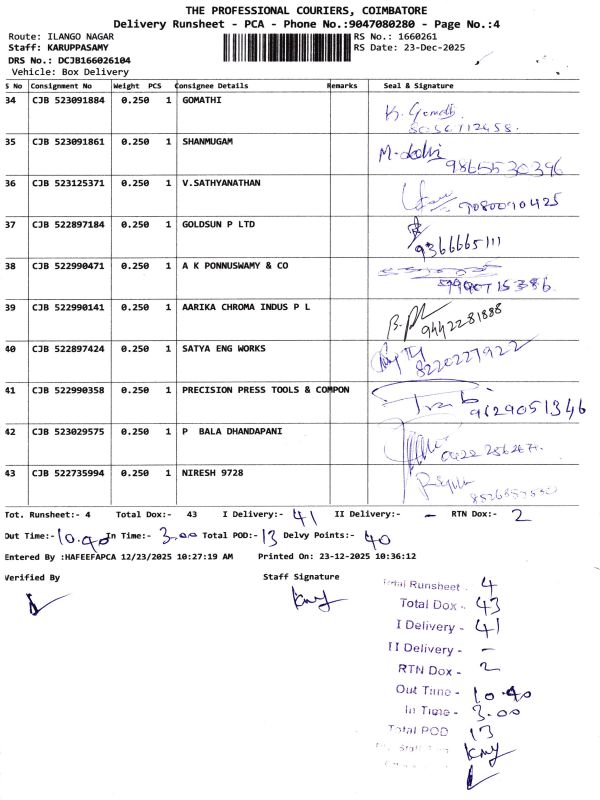 THE PROFESSIONAL COURIERS, COIMBATORE
Delivery Runsheet - PCA - Phone No.:9047080280 - Page No.:4
Route: ILANGO NAGAR RS No.: 1660261
Staff: KARUPPASAMY RS Date: 23-Dec-2025
DRS No.: DCJB166026104
Vehicle: Box Delivery
S No Consignment No Weight PCS Consignee Details Remarks Seal & Signature
34 CJB 523091884 0.250 1 GOMATHI K. Gomathi
8056112458.
35 CJB 523091861 0.250 1 SHANMUGAM 9865530396
36 CJB 523125371 0.250 1 V.SATHYANATHAN 9080090425
37 CJB 522897184 0.250 1 GOLDSUN P LTD
9366665111
38 CJB 522990471 0.250 1 A K PONNUSWAMY & CO
39 CJB 522990141 0.250 1 AARIKA CHROMA INDUS P L
9442281888
40 CJB 522897424 0.250 1 SATYA ENG WORKS
8220227922
41 CJB 522990358 0.250 1 PRECISION PRESS TOOLS & COMPON
9629051346
42 CJB 523029575 0.250 1 P BALA DHANDAPANI
43 CJB 522735994 0.250 1 NIRESH 9728
Tot. Runsheet:- 4 Total Dox:- 43 I Delivery:- 41 II Delivery:- - RTN Dox:- 2
Out Time:- 10.40 In Time:- 3.00 Total POD:- 13 Delvy Points:- 40
Entered By :HAFEEFAPCA 12/23/2025 10:27:19 AM Printed On: 23-12-2025 10:36:12
Verified By Staff Signature
Total Runsheet - 4
Total Dox - 43
I Delivery - 41
II Delivery - -
RTN Dox - 2
Out Time - 10.40
In Time - 3.00
Total POD 13